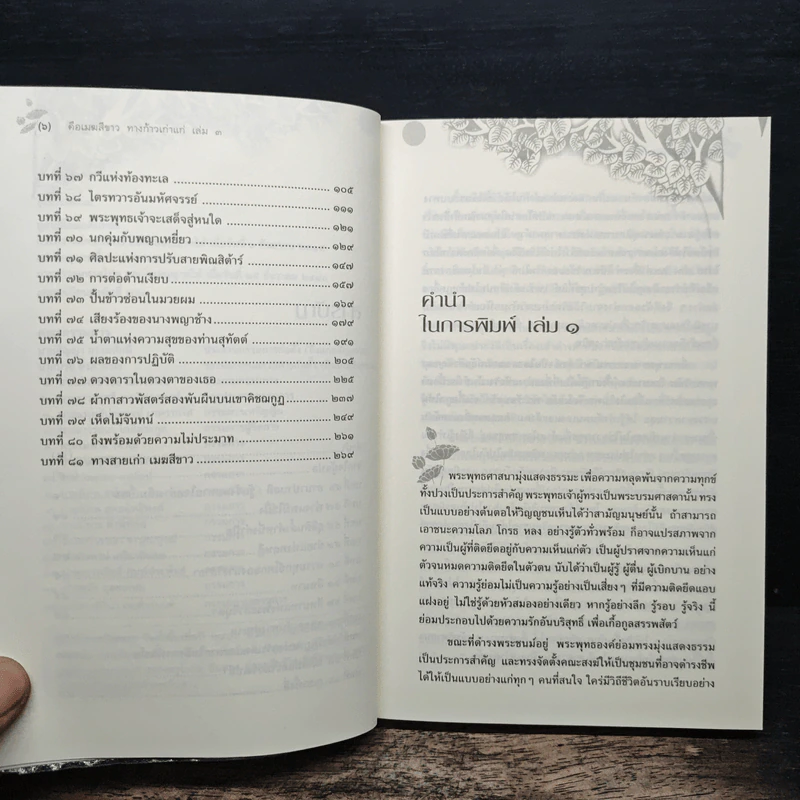 (๖) คือเมฆสีขาว ทางก้าวเก่าแก่ เล่ม ๓
บทที่ ๖๗ กวีแห่งท้องทะเล ๑๐๕
บทที่ ๖๘ ไตรทวารอันมหัศจรรย์ ๑๑๑
บทที่ ๖๙ พระพุทธเจ้าจะเสด็จสู่หนใด ๑๒๑
บทที่ ๗๐ นกคุ่มกับพญาเหยี่ยว ๑๒๙
บทที่ ๗๑ ศิลปะแห่งการปรับสายพิณสิต้าร์ ๑๔๗
บทที่ ๗๒ การต่อต้านเงียบ ๑๕๗
บทที่ ๗๓ ปั้นข้าวซ่อนในมวยผม ๑๖๙
บทที่ ๗๔ เสียงร้องของนางพญาช้าง ๑๗๙
บทที่ ๗๕ น้ำตาแห่งความสุขของท่านสุทัตต์ ๑๙๑
บทที่ ๗๖ ผลของการปฏิบัติ ๒๐๕
บทที่ ๗๗ ดวงดาราในดวงตาของเธอ ๒๒๕
บทที่ ๗๘ ผ้ากาสาวพัสตร์สองพันผืนบนเขาคิชฌกูฏ ๒๓๗
บทที่ ๗๙ เห็ดไม้จันทน์ ๒๔๙
บทที่ ๘๐ ถึงพร้อมด้วยความไม่ประมาท ๒๖๑
บทที่ ๘๑ ทางสายเก่า เมฆสีขาว ๒๖๙
คำนำ
ในการพิมพ์ เล่ม ๑
พระพุทธศาสนามุ่งแสดงธรรมะ เพื่อความหลุดพ้นจากความทุกข์
ทั้งปวงเป็นประการสำคัญ พระพุทธเจ้าผู้ทรงเป็นพระบรมศาสดานั้น ทรง
เป็นแบบอย่างต้นตอให้วิญญูชนเห็นได้ว่าสามัญมนุษย์นั้น ถ้าสามารถ
เอาชนะความโลภ โกรธ หลง อย่างรู้ตัวทั่วพร้อม ก็อาจแปรสภาพจาก
ความเป็นผู้ที่ติดยึดอยู่กับความเห็นแก่ตัว เป็นผู้ปราศจากความเห็นแก่
ตัวจนหมดความติดยึดในตัวตน นับได้ว่าเป็นผู้รู้ ผู้ตื่น ผู้เบิกบาน อย่าง
แท้จริง ความรู้ย่อมไม่เป็นความรู้อย่างเป็นเสี่ยงๆ ที่มีความติดยึดแอบ
แฝงอยู่ ไม่ใช่รู้ด้วยหัวสมองอย่างเดียว หากรู้อย่างลึก รู้รอบ รู้จริง นี้
ย่อมประกอบไปด้วยความรักอันบริสุทธิ์ เพื่อเกื้อกูลสรรพสัตว์
ขณะที่ดำรงพระชนม์อยู่ พระพุทธองค์ย่อมทรงมุ่งแสดงธรรม
เป็นประการสำคัญ และทรงจัดตั้งคณะสงฆ์ให้เป็นชุมชนที่อาจดำรงชีพ
ได้ให้เป็นแบบอย่างแก่ทุกๆ คนที่สนใจ ใคร่มีวิถีชีวิตอันราบเรียบอย่าง